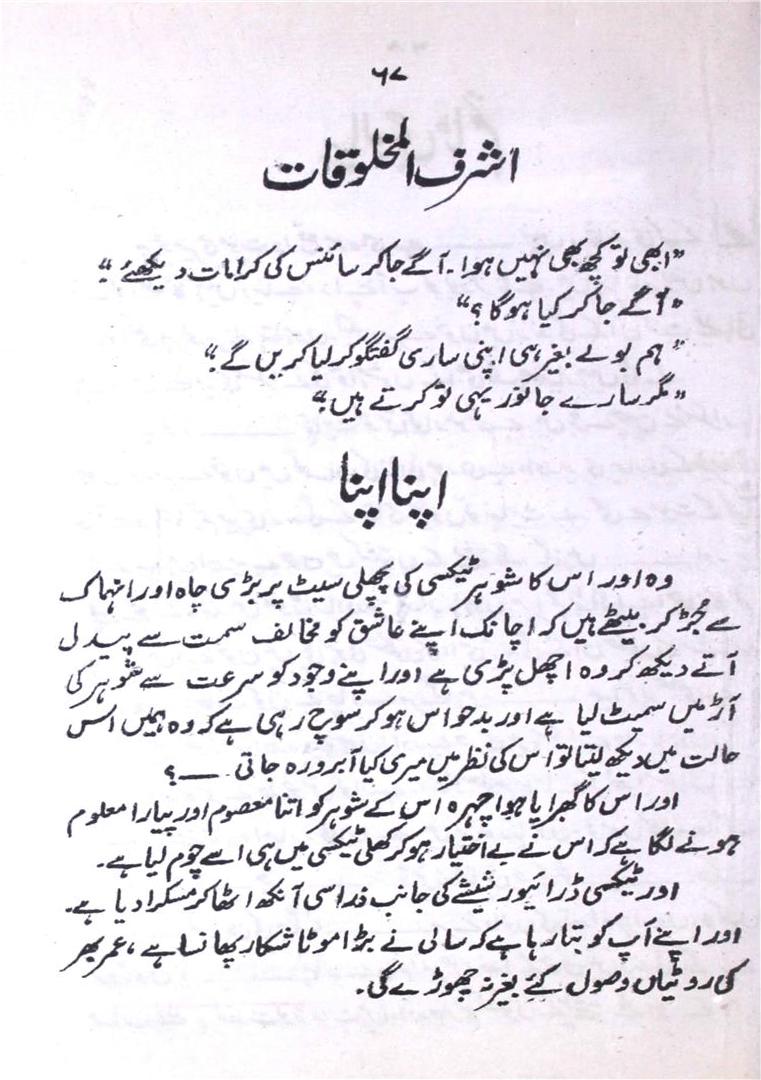 ۶۷
اشرف المخلوقات
"ابھی تو کچھ بھی نہیں ہوا۔ آگے جا کر سائنس کی کرامات دیکھئے"
"آگے جا کر کیا ہوگا؟"
"ہم بولے بغیر ہی اپنی ساری گفتگو کر لیا کریں گے۔"
"مگر سارے جانور یہی تو کرتے ہیں۔"
اپنا اپنا
وہ اور اس کا شوہر ٹیکسی کی پچھلی سیٹ پر بڑی چاہ اور انہماک
سے جڑ کر بیٹھے ہیں کہ اچانک اپنے عاشق کو مخالف سمت سے پیدل
آتے دیکھ کر وہ اچھل پڑی ہے اور اپنے وجود کو سرعت سے شوہر کی
آڑ میں سمیٹ لیا ہے اور بدحواس ہو کر سوچ رہی ہے کہ وہ ہمیں اس
حالت میں دیکھ لیتا تو اُس کی نظر میں میری کیا آبرو رہ جاتی ـــــ؟
اور اس کا گھبرایا ہوا چہرہ اس کے شوہر کو اتنا معصوم اور پیارا معلوم
ہونے لگا ہے کہ اس نے بے اختیار ہو کر کھلی ٹیکسی میں ہی اسے چوم لیا ہے۔
اور ٹیکسی ڈرائیور شیشے کی جانب ذرا سی آنکھ اٹھا کر مسکرا دیا ہے۔
اور اپنے آپ کو بتا رہا ہے کہ سالی نے بڑا موٹا شکار پھانسا ہے، عمر بھر
کی روٹیاں وصول کئے بغیر نہ چھوڑے گی۔